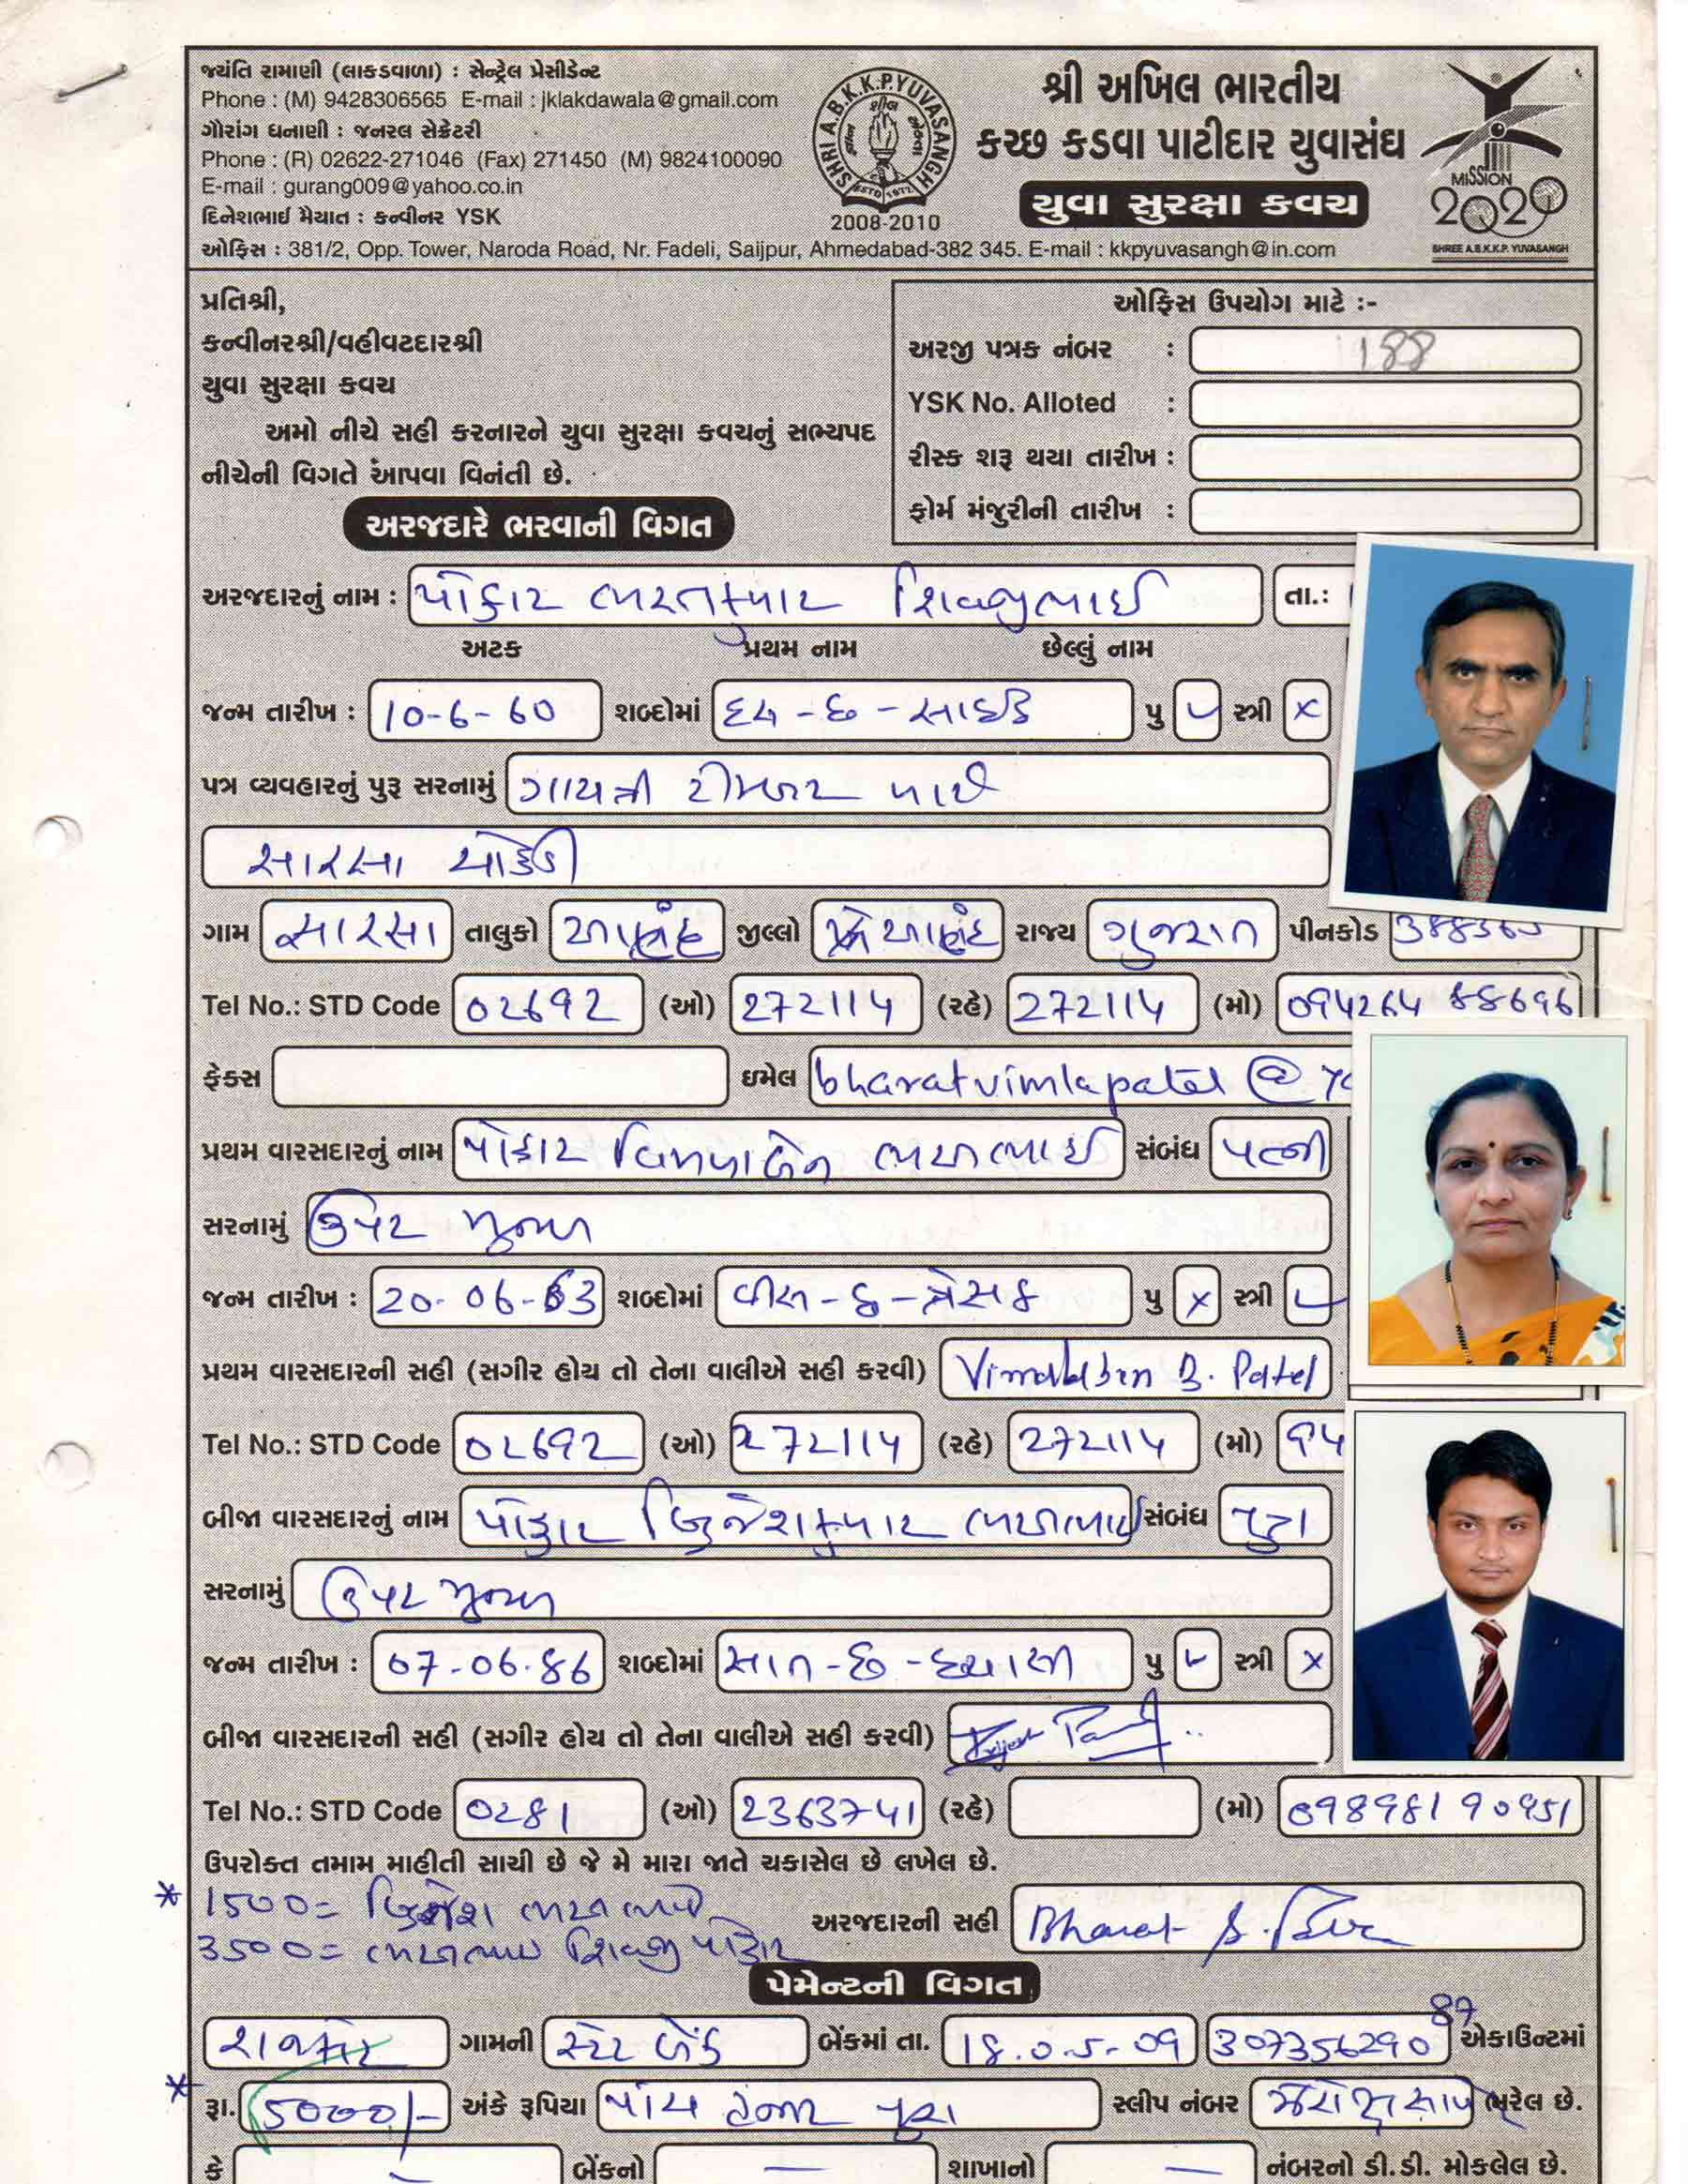 જયંતિ રામાણી (લાકડવાળા) : સેન્ટ્રેલ પ્રેસીડેન્ટ
Phone : (M) 9428306565 E-mail : jklakdawala@gmail.com
ગૌરાંગ ધનાણી : જનરલ સેક્રેટરી
Phone : (R) 02622-271046 (Fax) 271450 (M) 9824100090
E-mail : gurang009@yahoo.co.in
દિનેશભાઈ મૈયાત : કન્વીનર YSK
SHRI A.B.K.K.P.YUVASANGH
ESTD 1972
2008-2010
શ્રી અખિલ ભારતીય
કચ્છ કડવા પાટીદાર યુવાસંઘ
યુવા સુરક્ષા કવચ
MISSION
2020
SHREE A.B.K.K.P. YUVASANGH
ઓફિસ : 381/2, Opp. Tower, Naroda Road, Nr. Fadeli, Saijpur, Ahmedabad-382 345. E-mail : kkpyuvasangh@in.com
પ્રતિશ્રી,
કન્વીનરશ્રી/વહીવટદારશ્રી
યુવા સુરક્ષા કવચ
અમો નીચે સહી કરનારને યુવા સુરક્ષા કવચનું સભ્યપદ
નીચેની વિગતે આપવા વિનંતી છે.
ઓફિસ ઉપયોગ માટે :-
અરજી પત્રક નંબર : 188
YSK No. Alloted :
રીસ્ક શરૂ થયા તારીખ :
ફોર્મ મંજુરીની તારીખ :
અરજદારે ભરવાની વિગત
અરજદારનું નામ : પોકાર ભરતકુમાર શિવજીભાઈ તા.:
અટક પ્રથમ નામ છેલ્લું નામ
જન્મ તારીખ : 10-6-60 શબ્દોમાં દસ - છ - સાઈઠ પુ ✓ સ્ત્રી x
પત્ર વ્યવહારનું પુરૂ સરનામું ગાયત્રી ટીમ્બર માર્ટ
સારસા ચોકડી
ગામ સારસા તાલુકો આણંદ જીલ્લો આણંદ રાજ્ય ગુજરાત પીનકોડ 388365
Tel No.: STD Code 02692 (ઓ) 272114 (રહે) 272114 (મો) 094264 88696
ફેક્સ ઇમેલ bharatvimlapatel @
પ્રથમ વારસદારનું નામ પોકાર વિમળાબેન ભરતભાઈ સંબંધ પત્ની
સરનામું ઉપર મુજબ
જન્મ તારીખ : 20-06-63 શબ્દોમાં વીસ - છ - ત્રેસઠ પુ x સ્ત્રી ✓
પ્રથમ વારસદારની સહી (સગીર હોય તો તેના વાલીએ સહી કરવી) Vimalaben B. Patel
Tel No.: STD Code 02692 (ઓ) 272114 (રહે) 272114 (મો) 94
બીજા વારસદારનું નામ પોકાર બ્રિજેશકુમાર ભરતભાઈ સંબંધ પુત્ર
સરનામું ઉપર મુજબ
જન્મ તારીખ : 07-06-86 શબ્દોમાં સાત - છ - છયાસી પુ ✓ સ્ત્રી x
બીજા વારસદારની સહી (સગીર હોય તો તેના વાલીએ સહી કરવી)
Tel No.: STD Code 0281 (ઓ) 2363741 (રહે) (મો) 09898190951
ઉપરોક્ત તમામ માહીતી સાચી છે જે મે મારા જાતે ચકાસેલ છે લખેલ છે.
* 1500= બ્રિજેશ ભરતભાઈ
3500= ભરતભાઈ શિવજી પોકાર
અરજદારની સહી Bharat S.
પેમેન્ટની વિગત
રાજકોટ ગામની સ્ટેટ બેંક બેંકમાં તા. 18-05-09 30735629087 એકાઉન્ટમાં
* રૂા. 5000/- અંકે રૂપિયા પાંચ હજાર પુરા સ્લીપ નંબર ભરેલ છે.
કે — બેંકનો — શાખાનો — નંબરનો ડી.ડી. મોકલેલ છે.